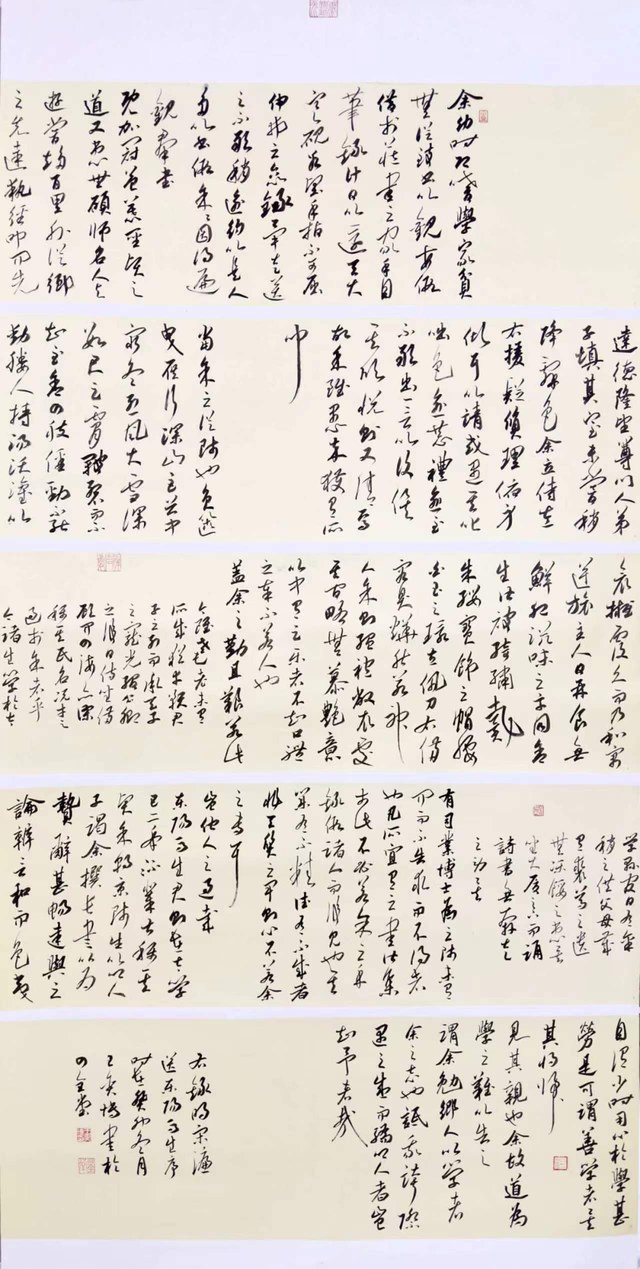 余幼時即嗜學家貧
無從致書以觀每假
借於藏書之家手自
筆錄計日以還天大
寒硯冰堅手指不可屈
伸弗之怠錄畢走送
之不敢稍逾約以是人
多以書假余余因得遍
觀群書
既加冠益慕聖賢之
道又患無碩師名人與
遊嘗趨百里外從鄉
之先達執經叩問先
達德隆望尊門人弟
子填其室未嘗稍
降辭色余立侍左
右援疑質理俯身
傾耳以請或遇其叱
咄色愈恭禮愈至
不敢出一言以復俟
其欣悅則又請焉
故余雖愚卒獲有所
聞
當余之從師也負篋
曳屣行深山巨谷中
窮冬烈風大雪深
數尺足膚皸裂而不
知至舍四肢僵勁不能
動媵人持湯沃灌以
衾擁覆久而乃和寓
逆旅主人日再食無
鮮肥滋味之享同舍
生皆被綺繡戴
朱纓寶飾之帽腰
白玉之環左佩刀右備
容臭燁然若神
人余則縕袍敝衣處
其間略無慕艷意
以中有足樂者不知口體
之奉不若人也
蓋余之勤且艱若此
今雖耄老未有
所成猶幸預君
子之列而承天子
之寵光綴公卿
之後日侍坐備
顧問四海亦謬
稱其氏名況才之
過於余者乎
今諸生學於太
學縣官日有廩
稍之供父母歲
有裘葛之遺
無凍餒之患矣
坐大廈之下而誦
詩書無奔走
之勞矣
有司業博士為之師未有
問而不告求而不得者
也凡所宜有之書皆集
於此不必若余之手
錄假諸人而後見也其
業有不精德有不成者
非天質之卑則心不若余
之專耳
豈他人之過哉
東陽馬生君則在太學
已二年流輩甚稱其
賢余朝京師生以鄉人
子謁余撰長書以為
贄辭甚暢達與之
論辨言和而色夷
自謂少時用心於學甚
勞是可謂善學者矣
其將歸
見其親也余故道為
學之難以告之
謂余勉鄉人以學者
余之志也詆我誇際
遇之盛而驕鄉人者豈
知予者哉
右錄明宋濂
送東陽馬生序
時在癸卯冬月
書於